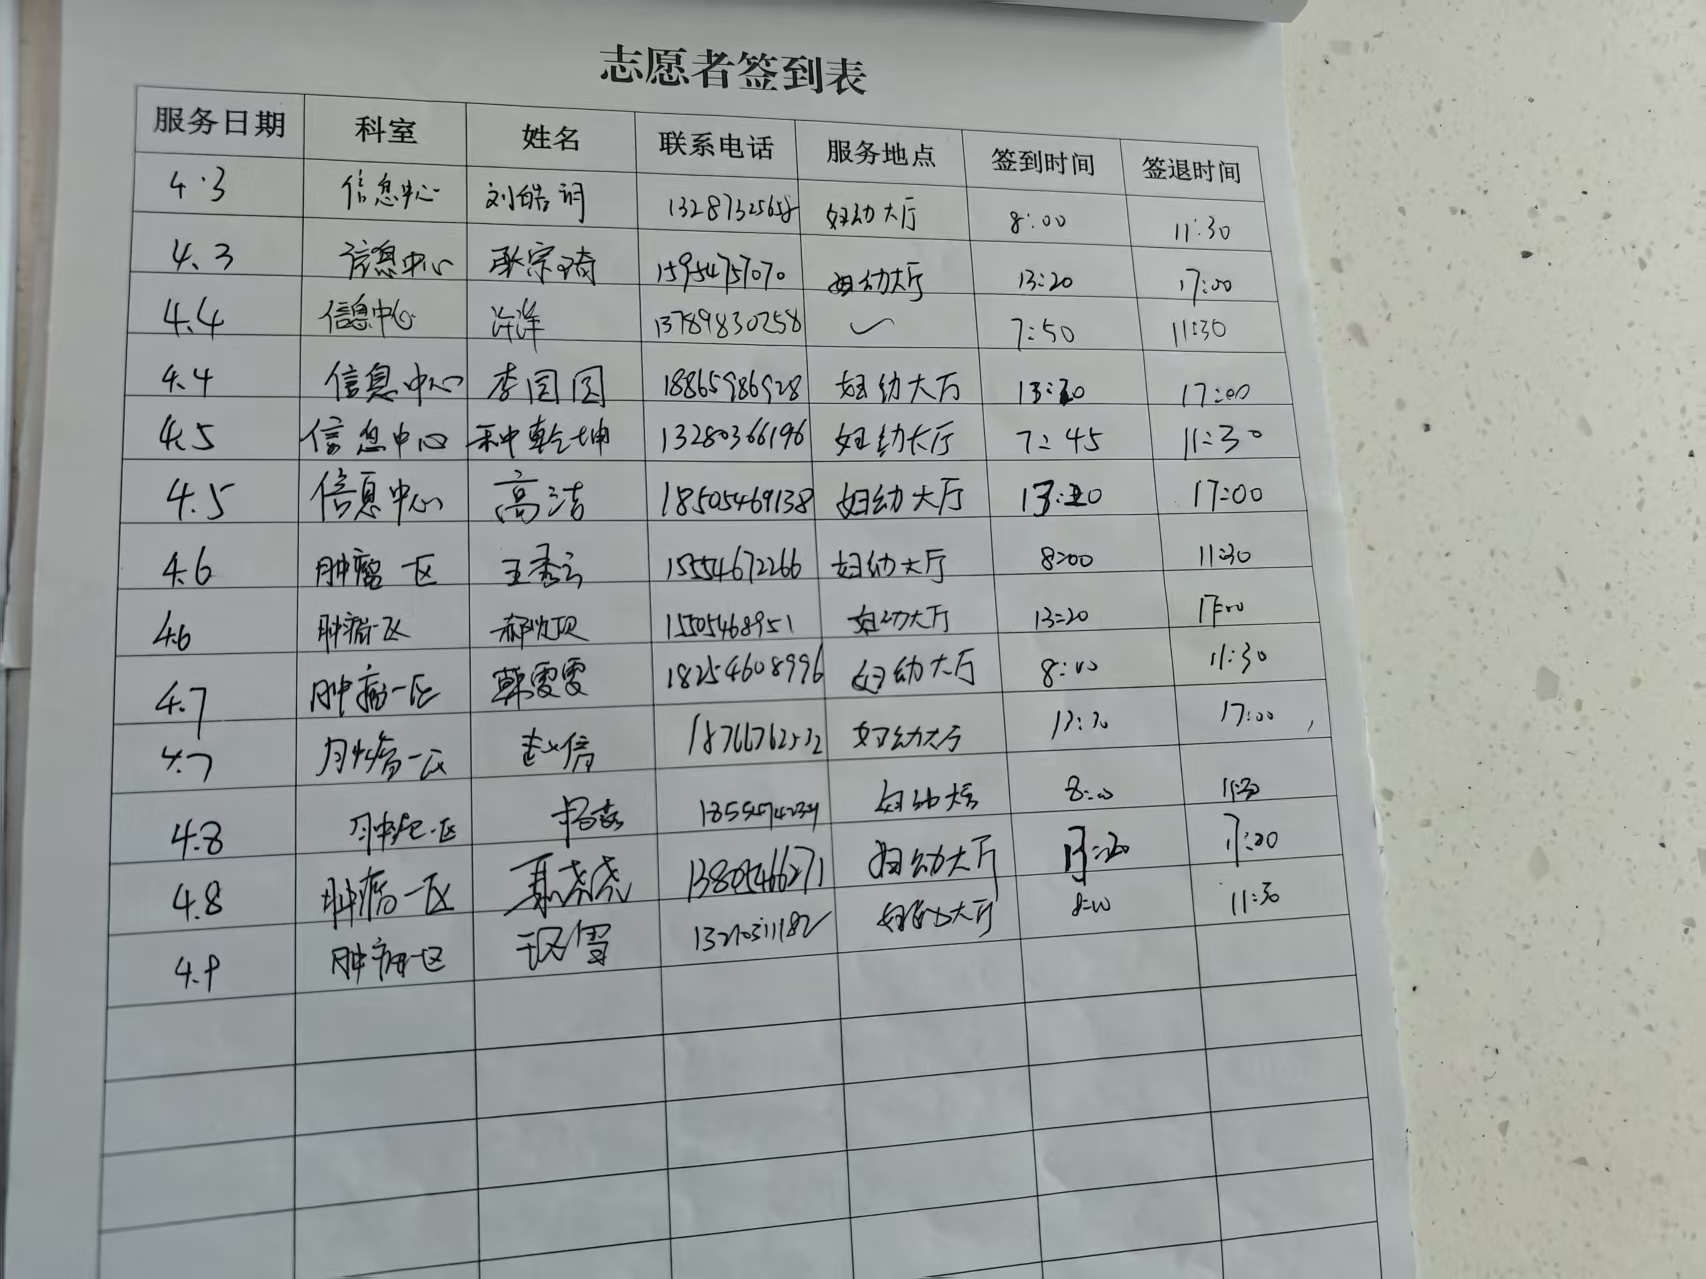 志愿者签到表
服务日期 科室 姓名 联系电话 服务地点 签到时间 签退时间
4.3 信息中心 刘皓词 妇幼大厅 8:00 11:30
4.3 信息中心 耿宗琦 15954757070 妇幼大厅 13:20 17:00
4.4 信息中心 许洋 13789830258 7:50 11:30
4.4 信息中心 李园园 18865986928 妇幼大厅 13:20 17:00
4.5 信息中心 种乾坤 13280366196 妇幼大厅 7:45 11:30
4.5 信息中心 高洁 18505469138 妇幼大厅 13:20 17:00
4.6 肿瘤一区 王秀云 15554672266 妇幼大厅 8:00 11:30
4.6 肿瘤一区 15505468951 妇幼大厅 13:20 17:00
4.7 肿瘤一区 韩雯雯 18254608996 妇幼大厅 8:00 11:30
4.7 肿瘤一区 赵倩 妇幼大厅 13:20 17:00
4.8 肿瘤一区 妇幼大厅 8:00 11:30
4.8 肿瘤一区 聂晓晓 13805466271 妇幼大厅 13:20 17:00
4.9 肿瘤一区 妇幼大厅 8:00 11:30